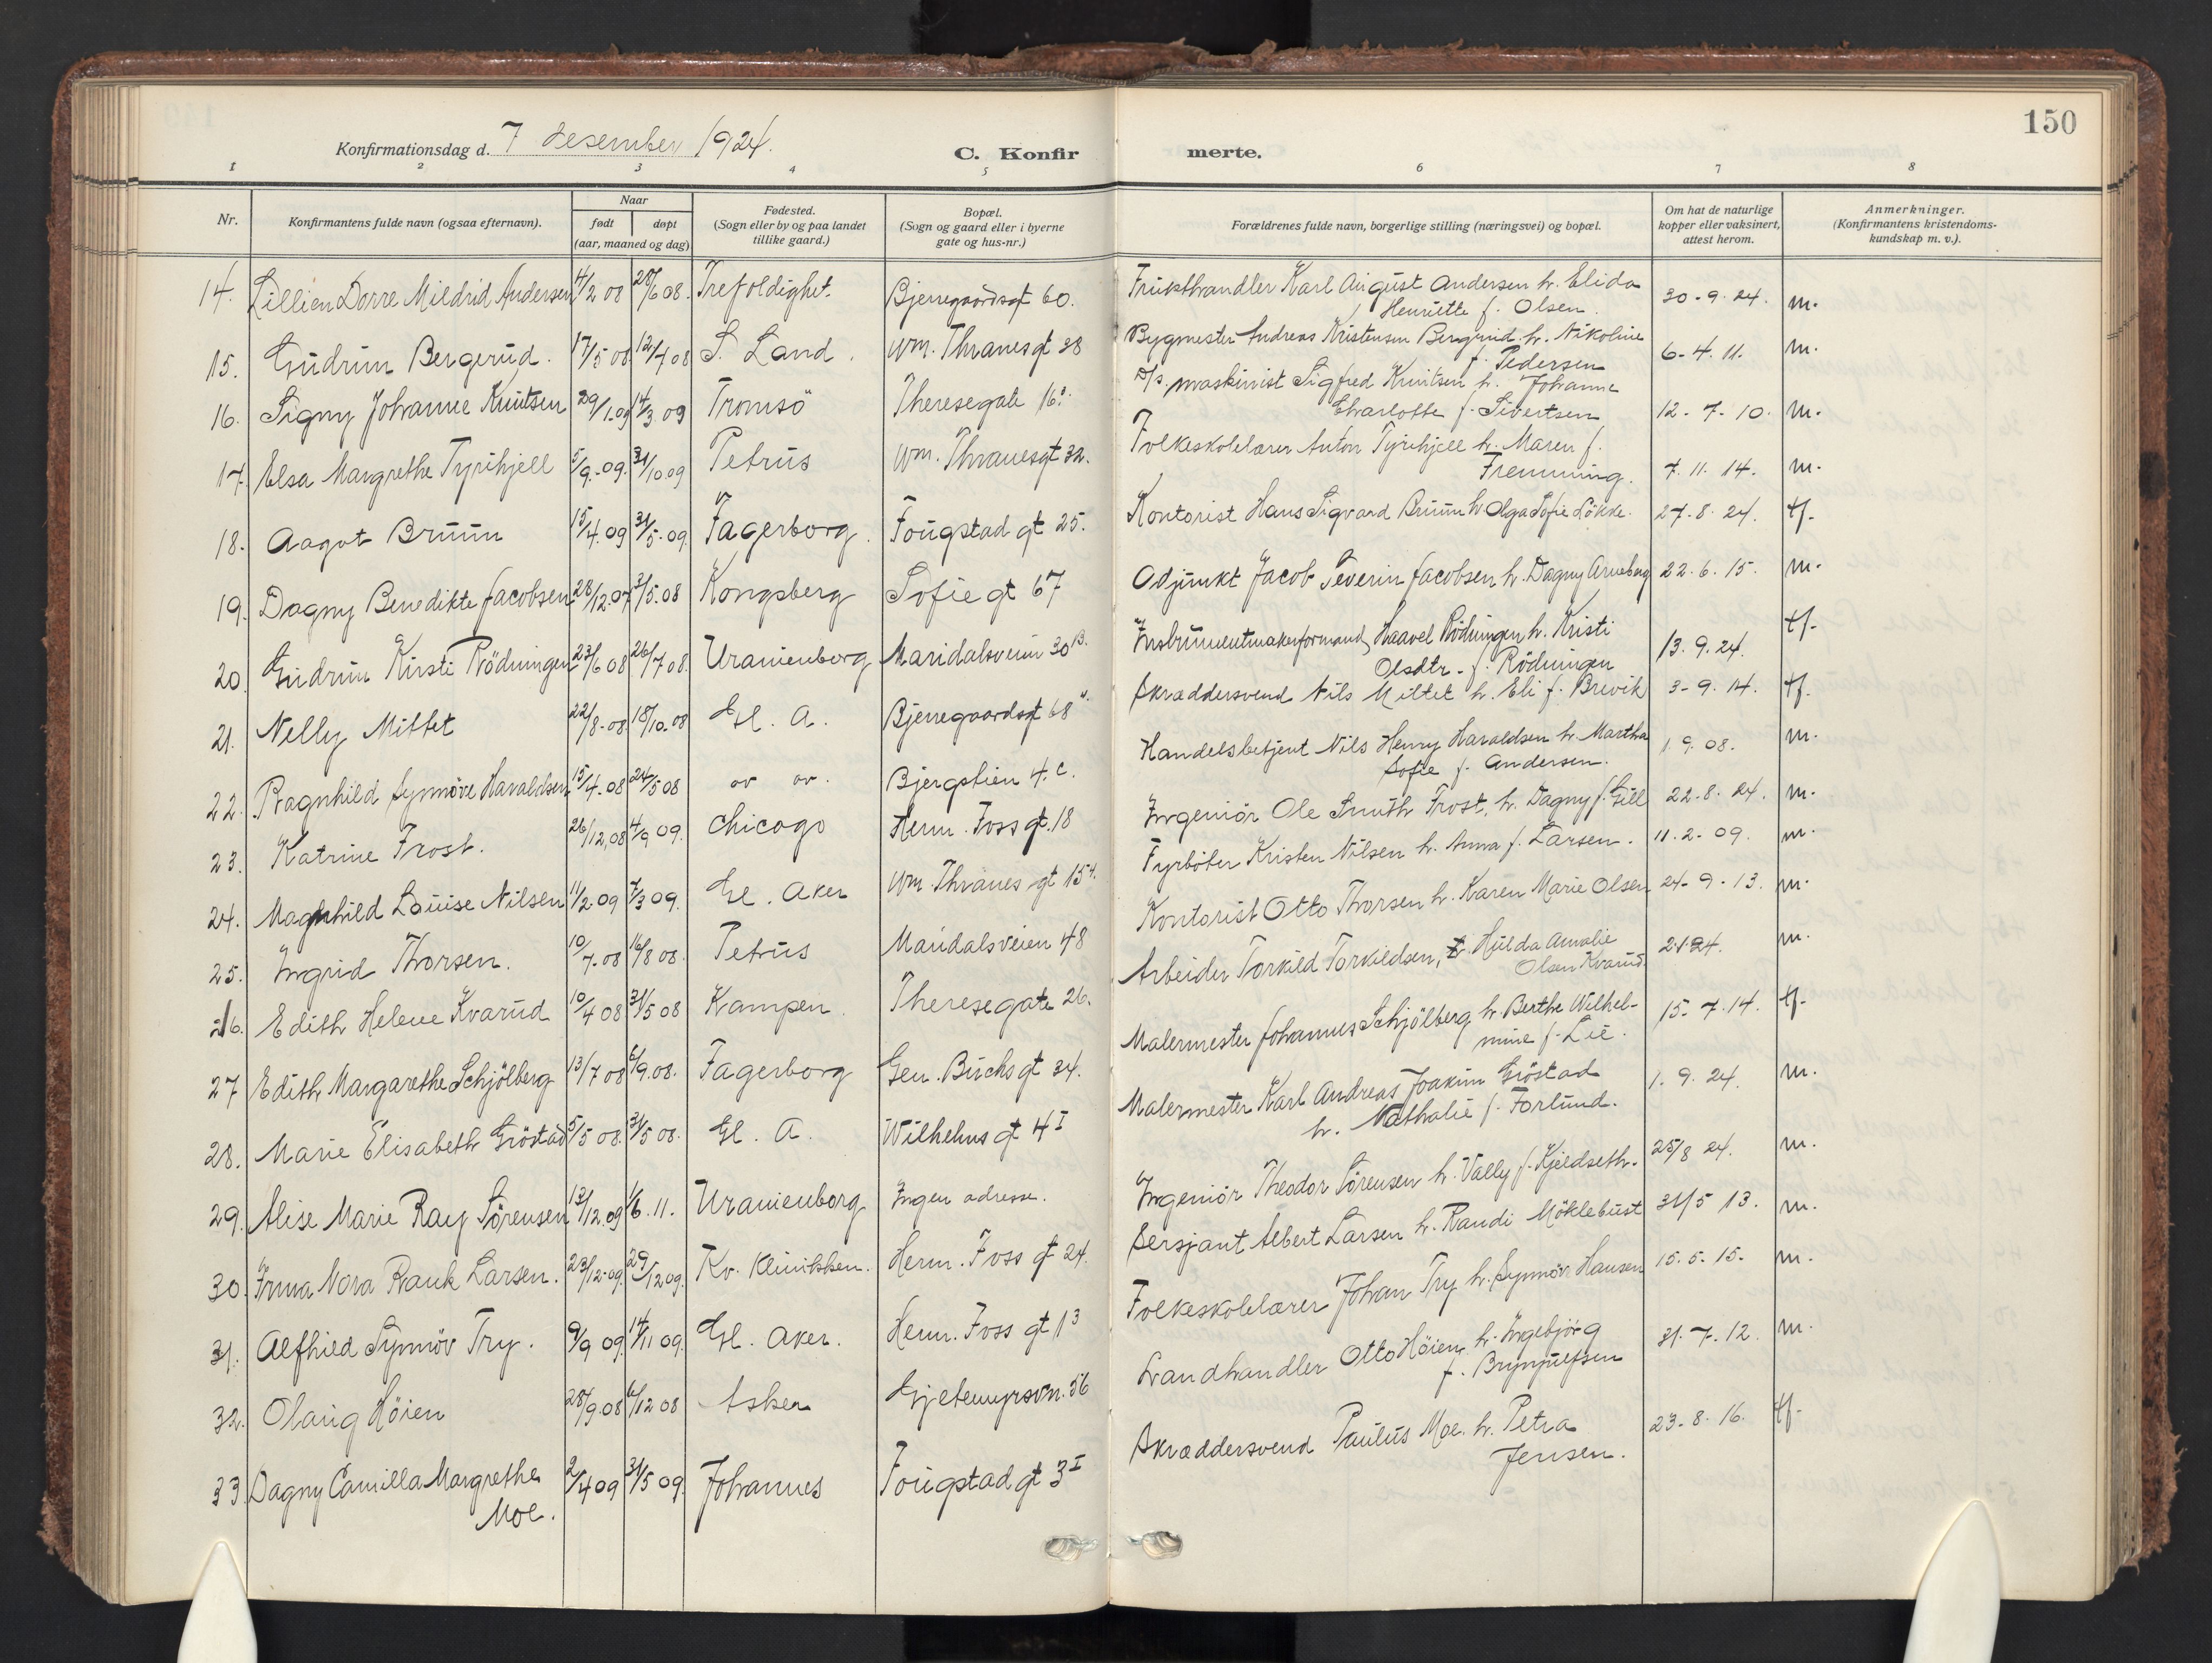 150
Konfirmationsdag d. 7 desember 1924.
C. Konfirmerte.
1 2 3 4 5 6 7 8
Nr. Konfirmantens fulde navn (ogsaa efternavn). Naar født døpt (aar, maaned og dag) Fødested. (Sogn eller by og paa landet tillike gaard.) Bopæl. (Sogn og gaard eller i byerne gate og hus-nr.) Forældrenes fulde navn, borgerlige stilling (næringsvei) og bopæl. Om hat de naturlige kopper eller vaksinert, attest herom. Anmerkninger. (Konfirmantens kristendomskundskap m. v.).
14. Lillien Dorre Mildrid Andersen 4/2 08 28/6 08. Trefoldighet. Bjerregaardsgt 60. Frukthandler Karl August Andersen h. Elida Henriette f. Olsen. 30-9.24. m.
15. Gudrun Bergerud. 17/5 08 12/7 08 S. Land. Wm. Thranesgt 38 Bygmester Andreas Kristensen Bergerud h. Nikoline f. Pedersen 6-4.11. m.
16. Signy Johanne Knutsen 29/1.09 14/3 09 Tromsö Theresegate 16. D/s. maskinist Sigfred Knutsen h. Johanne Charlotte f. Sivertsen 12-7-10. m.
17. Elsa Margrethe Tyrihjell 5/9.-09. 31/10.09 Petrus Wm. Thranesgt 32. Folkeskolelærer Anton Tyrihjell h. Maren f. Fremming. 7.11.14. m.
18. Aagot Bruun 15/4.09 31/5-09. Fagerborg. Fougstad gt 25. Kontorist Hans Sigvard Bruun h. Olga Sofie Løkke. 27-8.24. tf.
19. Dagny Benedikte Jacobsen 28/12.07 3/5.08 Kongsberg Sofie gt 67 Adjunkt Jacob Severin Jacobsen h. Dagny Arneberg 22.6.15. m.
20. Gudrun Kirsti Rödningen 23/6 08 26/7 08. Uranienborg Maridalsveien 30B. Instrumentmakerformand Haavel Rödningen h. Kristi Olsdtr. f. Rödningen 13.9.24. tf.
21. Nelly Mittet 22/8-08 18/10.08 Gl. A. Bjerregaardsgt 68 Skræddersvend Nils Mittet h. Eli f. Brevik 3-9.14. tf.
22. Ragnhild Synnöve Haraldsen 15/4-08 24/5 08 " " Bjergstien 4.c. Handelsbetjent Nils Henry Haraldsen h. Martha Sofie f. Andersen. 1.9.08. m.
23. Katrine Frost. 26/12,08 4/9 09. Chicago Herm. Foss gt. 18 Ingeniör Ole Smith Frost, h. Dagny f. Gill 22.8.24. m.
24. Magnhild Louise Nilsen 11/2.09 7/3 09. Gl. Aker Wm. Thranes gt 15 4. Fyrböter Kristen Nilsen h. Anna f. Larsen. 11.2-09. m.
25. Ingrid Thorsen. 10/7.08 16/8 08. Petrus Maridalsveien 48 Kontorist Otto Thorsen h. Karen Marie Olsen 24-9-13. m.
26. Edith Helene Kvarud 10/4 08 31/5 08 Kampen Theresegate 26. Arbeider Torkild Torkildsen, Hulda Amalie Olsen Kvarud. m.
27 Edith Margarethe Schjölberg 13/7 08 6/9.08. Fagerborg Gen. Birchs gt 34. Malermester Johannes Schjölberg h. Berthe Wilhelmine f. Lie. 15-7.14. tf.
28. Marie Elisabeth Gröstad 5/5 08. 31/5 08. Gl. A. Wilhelms gt 4 I Malermester Karl Andreas Joakim Gröstad h. Nathalie f. Forlund. 1.9.24. m.
29. Alise Marie Ray Sörensen 13/12.09 1/6.11. Uranienborg Ingen adresse. Ingeniör Theodor Sörensen h. Vally f. Kjeldseth. 25/8 24. m.
30. Irma Nora Rank Larsen. 23/12-09. 29/12 09. Kv. klinikken. Herm. Foss gt 24. Sersjant Albert Larsen h. Randi Möklebust 31/5 13. m.
31. Alfhild Synnöv Try. 9/9 09. 14/11 09. Gl. Aker. Herm. Foss gt 13 Folkeskolelærer Johan Try h. Synnöv Hansen 15.5.15. m.
32. Olaug Höien 28/9.08 6/12 08 Asker Gjetemyrsvn. 56 Landhandler Otto Höien h. Ingebjörg f. Brynjulfsen 31.7.12. m.
33 Dagny Camilla Margrethe Moe. 2/4 09 31/5 09. Johannes Fougstad gt 3 I Skræddersvend Paulus Moe. h. Petra Jensen. 23-8.16. tf.